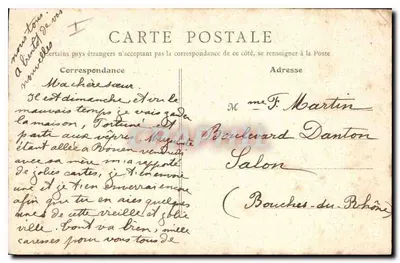 nous tous
A bientôt de vos
nouvelles
I
CARTE POSTALE
Certains pays étrangers n'acceptant pas la correspondance de ce côté, se renseigner à la Poste
Correspondance
Adresse
Ma chère sœur.
Il est dimanche et vu le
mauvais temps je vais garder
la maison, Fortuné est
parti aux vêpres
étant allée à Rouen vendredi
avec sa mère m'a rapporté
de jolies cartes, je t'en envoie
une et je t'en enverrai encore
afin que tu en aies quelques
unes de cette vieille et jolie
ville. Tout va bien, mille
caresses pour vous tous de
M me F. Martin
Boulevard Danton
Salon
(Bouches-du-Rhône)